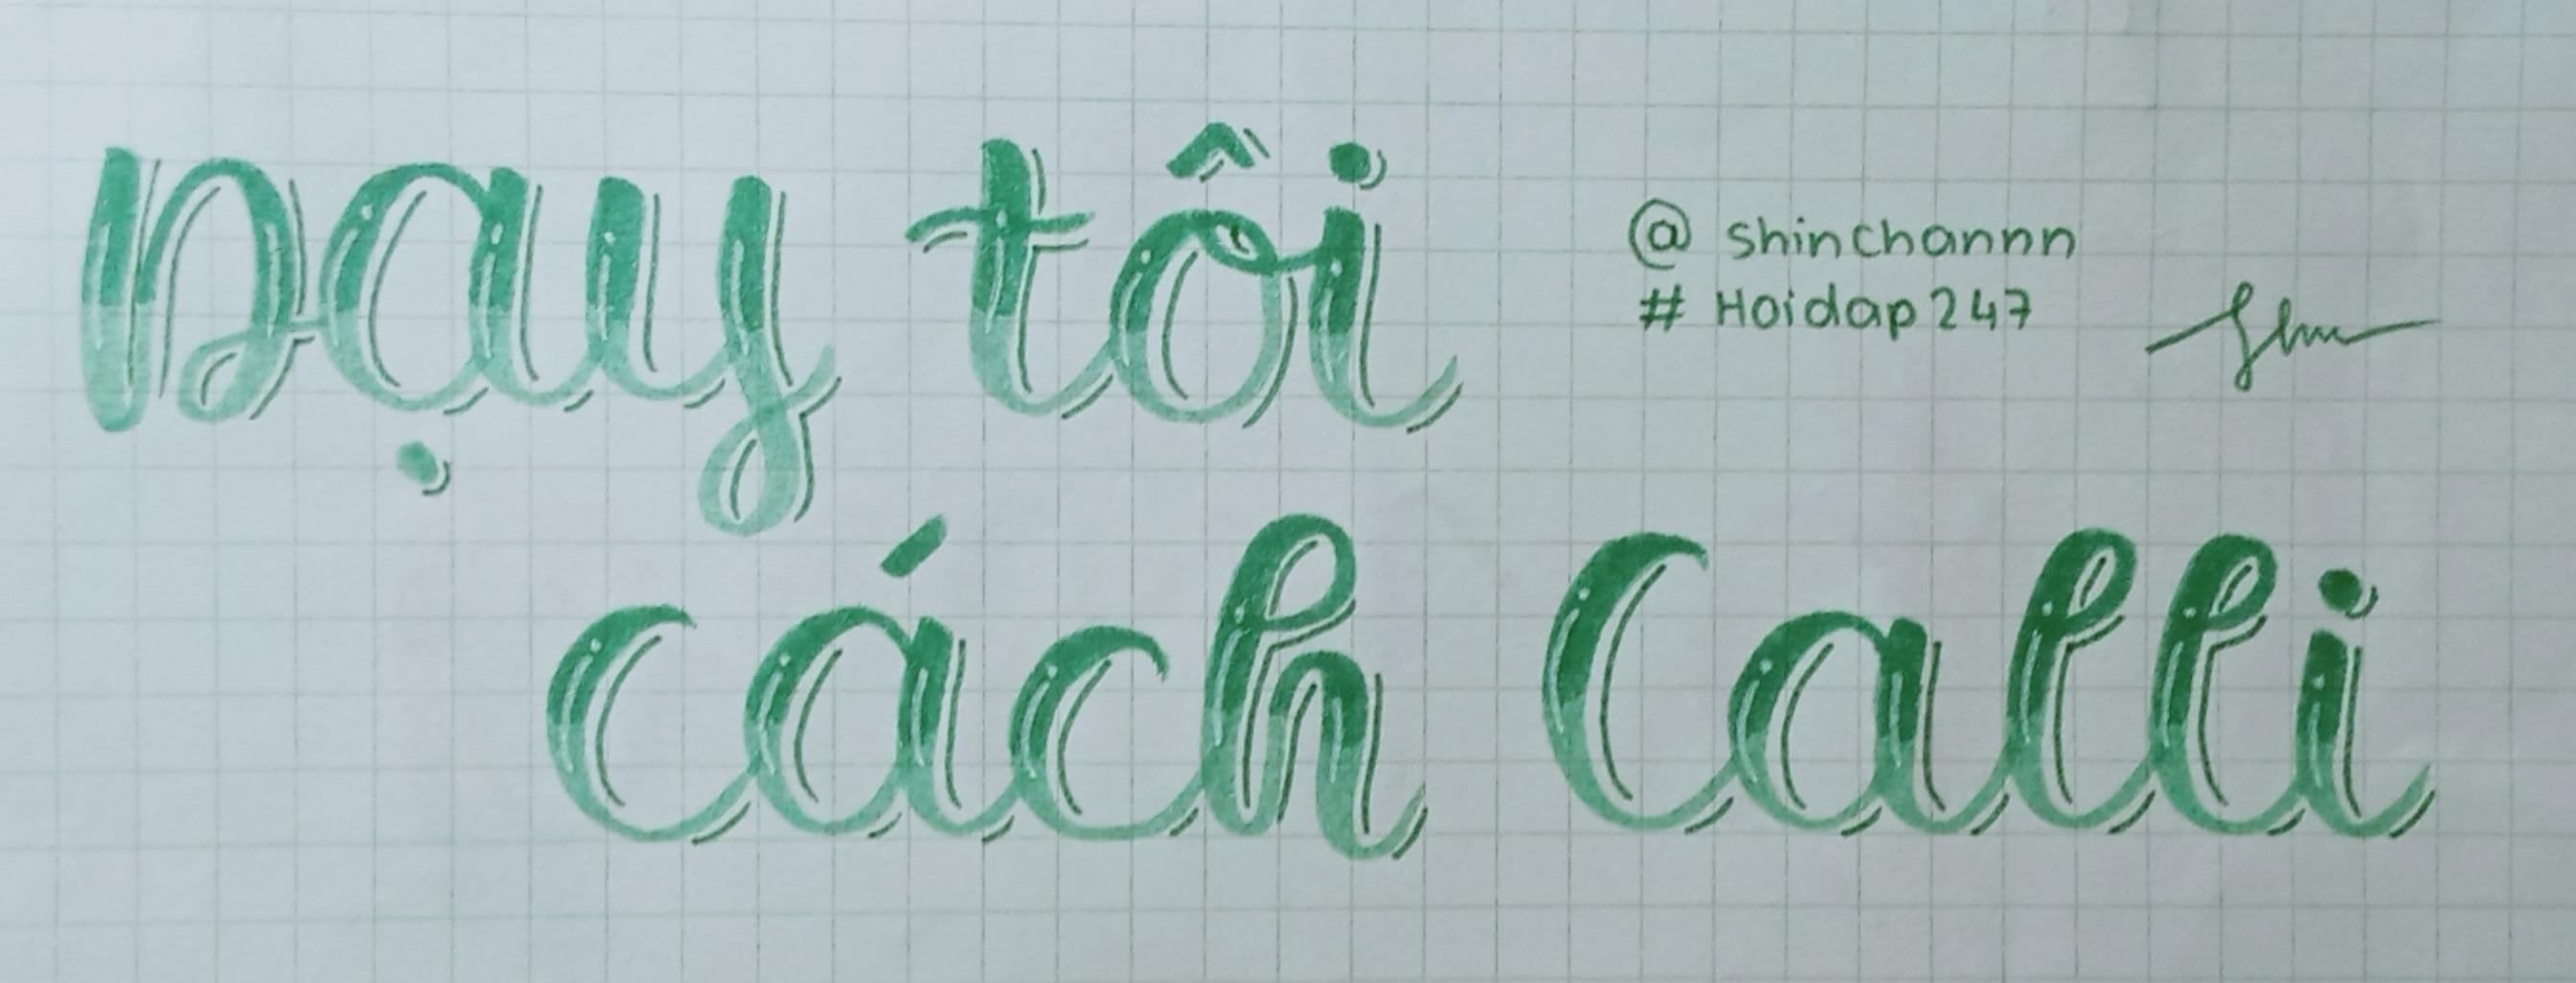 Dạy tôi
@ shinchannn
# Hoidap247
cách Calli